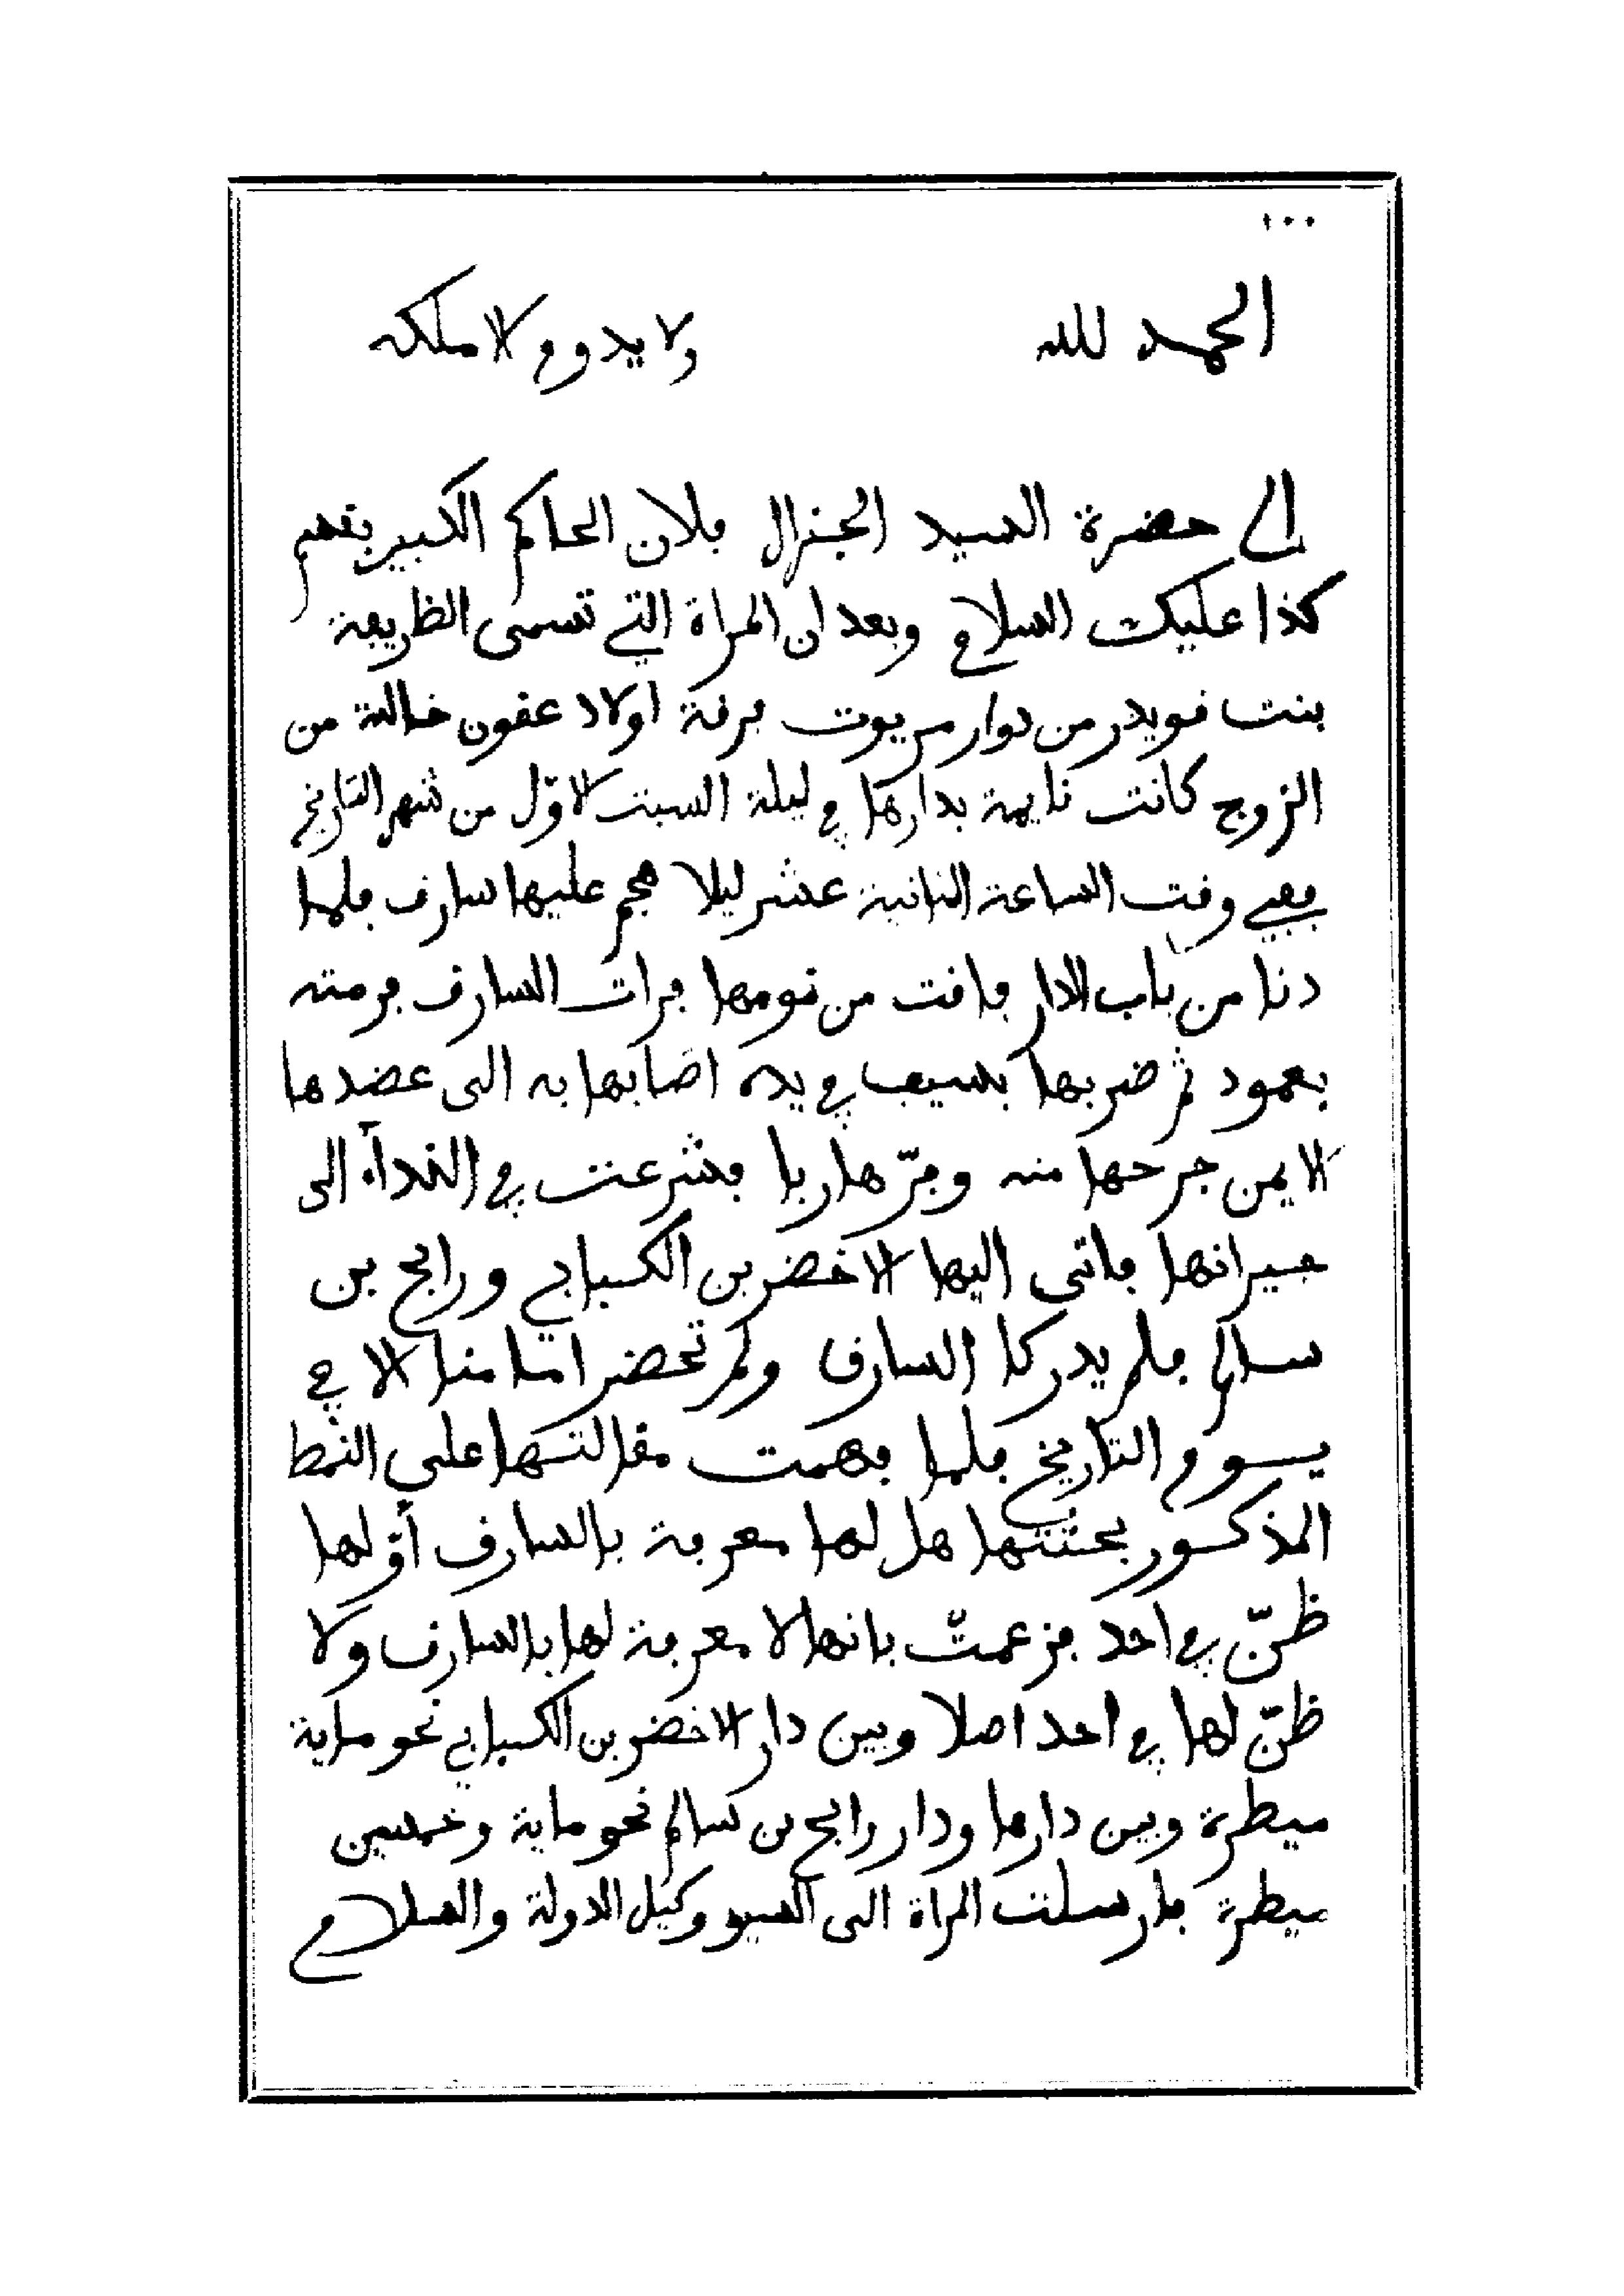 ١٠٠
الحمد لله ولا يدوم الا ملكه
الى حضرة السيد الجنرال فلان الحاكم الكبير بقسم
كذا عليك السلام وبعد ان المراة التي تسمى الظريفة
بنت قويدر من دوار مريوت فرقة اولاد عفون خالية من
الزوج كانت نايمة بدارها في ليلة السبت الاوّل من شهر التاريخ
ففي وقت الساعة الثانية عشر ليلا هجم عليها سارق فلما
دنا من باب الدار فافت من نومها فرات السارق فرمته
بعمود ثم ضربها بسيف في يده اصابها به الى عضدها
الايمن جرحها منه وفرّ هاربا فشرعت في الندآء الى
جيرانها فاتى اليها الاخضر بن الكسبابي ورابح بن
سالم فلم يدركا السارق ولم تحضر امامنا الا في
يوم التاريخ فلما فهمت مقالتها على النمط
المذكور بحثتها هل لها معرفة بالسارق أو لها
ظنّ في احد فزعمت بانها لا معرفة لها بالسارق ولا
ظنّ لها في احد اصلا وبين دار الاخضر بن الكسبابي نحو ماية
ميطرة وبين دارها ودار رابح بن سالم نحو ماية وخمسين
ميطرة فارسلت المراة الى السيو وكيل الدولة والسلام